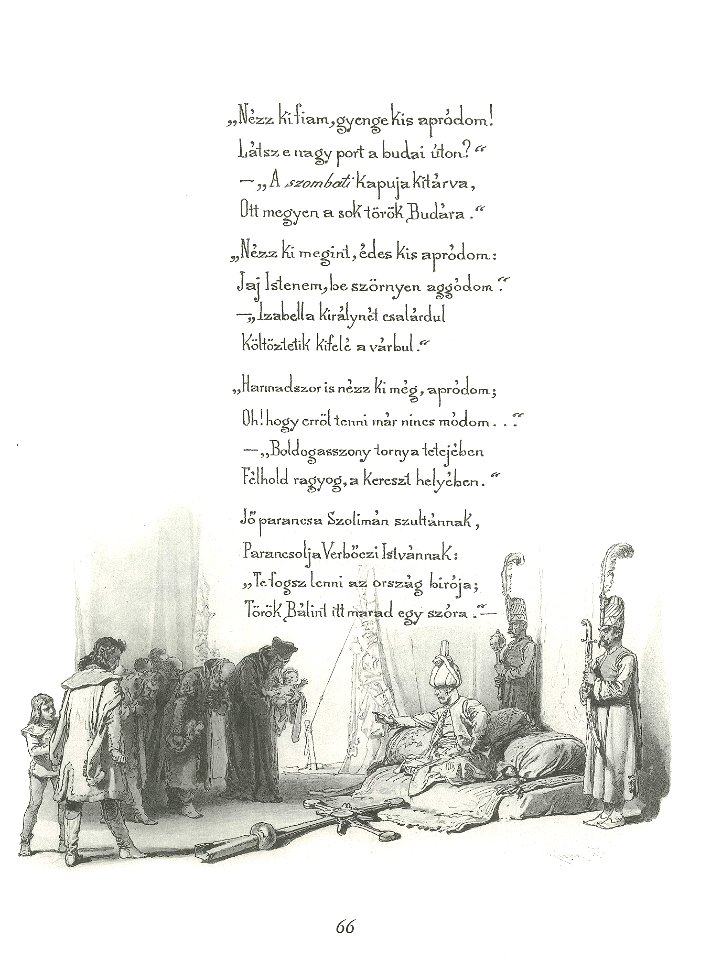 „Nézz ki fiam, gyenge kis apródom!
Látsz e nagy port a budai úton?“
—„A szombati kapuja kitárva,
Ott megyen a sok török Budára.“
„Nézz ki megint, édes kis apródom:
Jaj Istenem, be szörnyen aggódom.“
—„Izabella királynét csalárdul
Költöztetik kifelé a várbul.“
„Harmadszor is nézz ki még, apródom;
Oh! hogy erről tenni már nincs módom...“
—„Boldogasszony tornya tetejében
Félhold ragyog, a kereszt helyében.“
Jő parancsa Szolimán szultánnak,
Parancsolja Verbőczi Istvánnak:
„Te fogsz lenni az ország birója;
Török Bálint itt marad egy szóra.“—
66